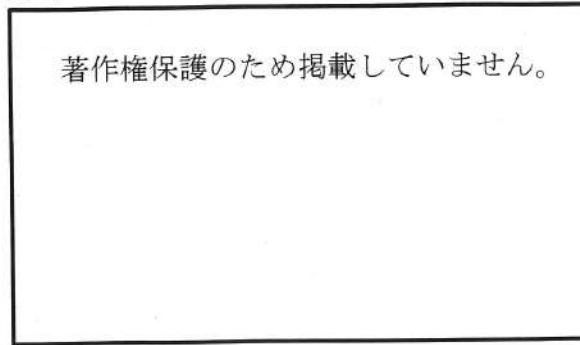 著作権保護のため掲載していません。